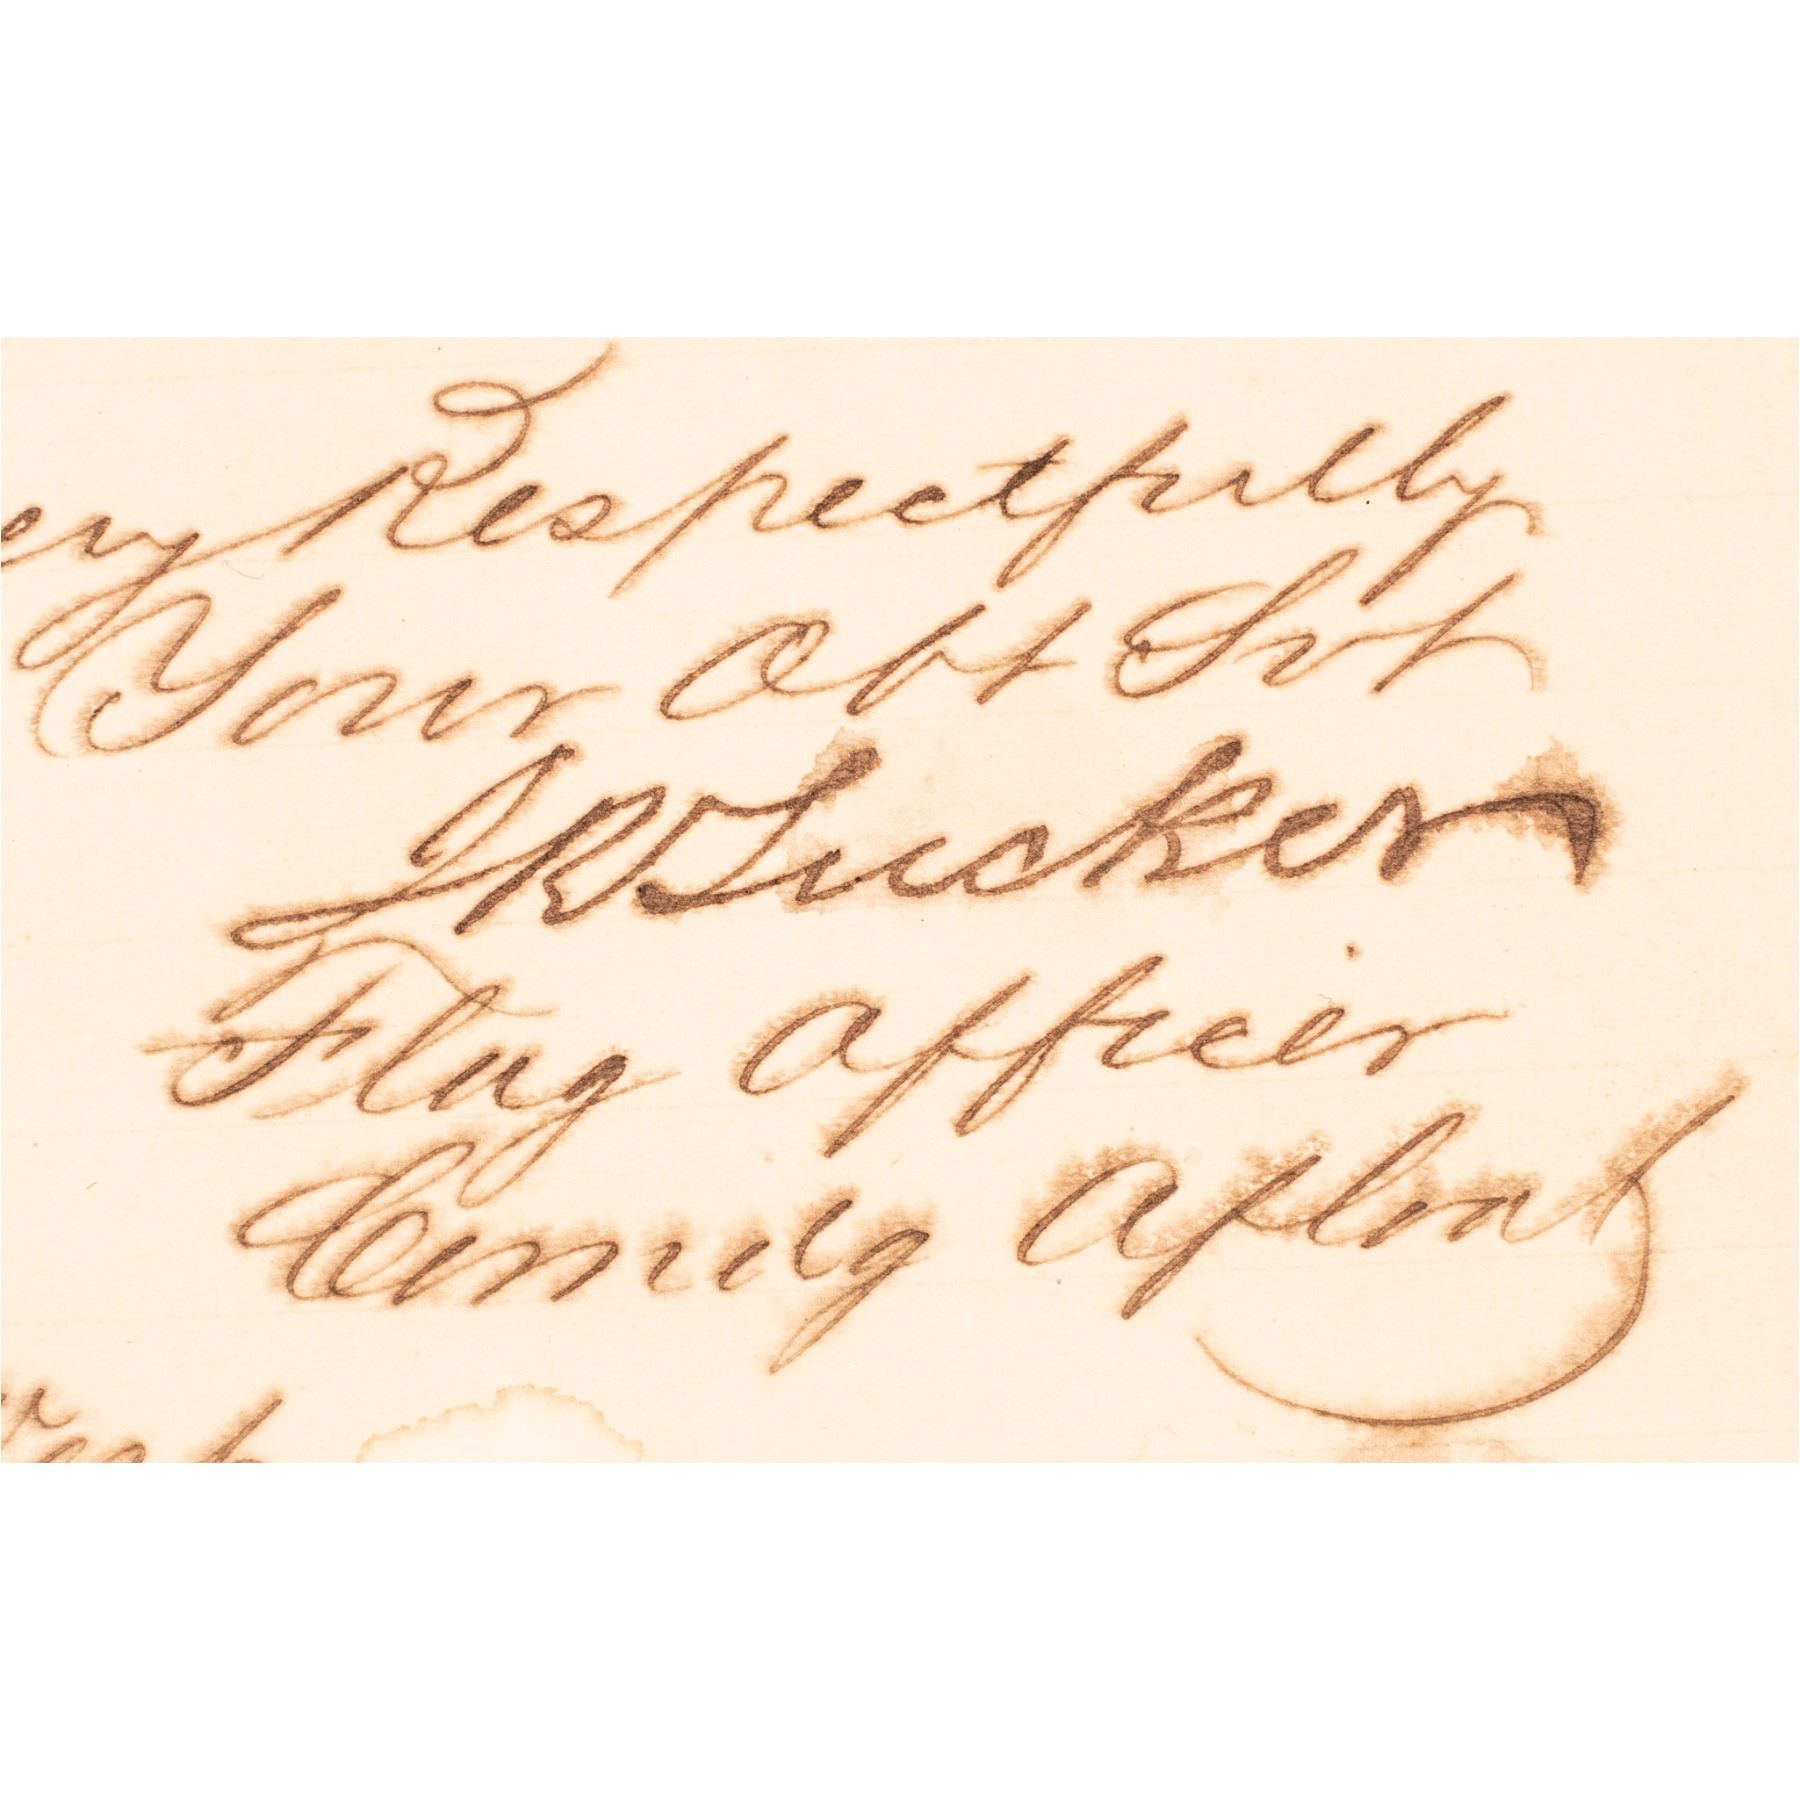 ery Respectfully
Your Obt Svt
JRTucker
Flag Officer
Comdg Afloat